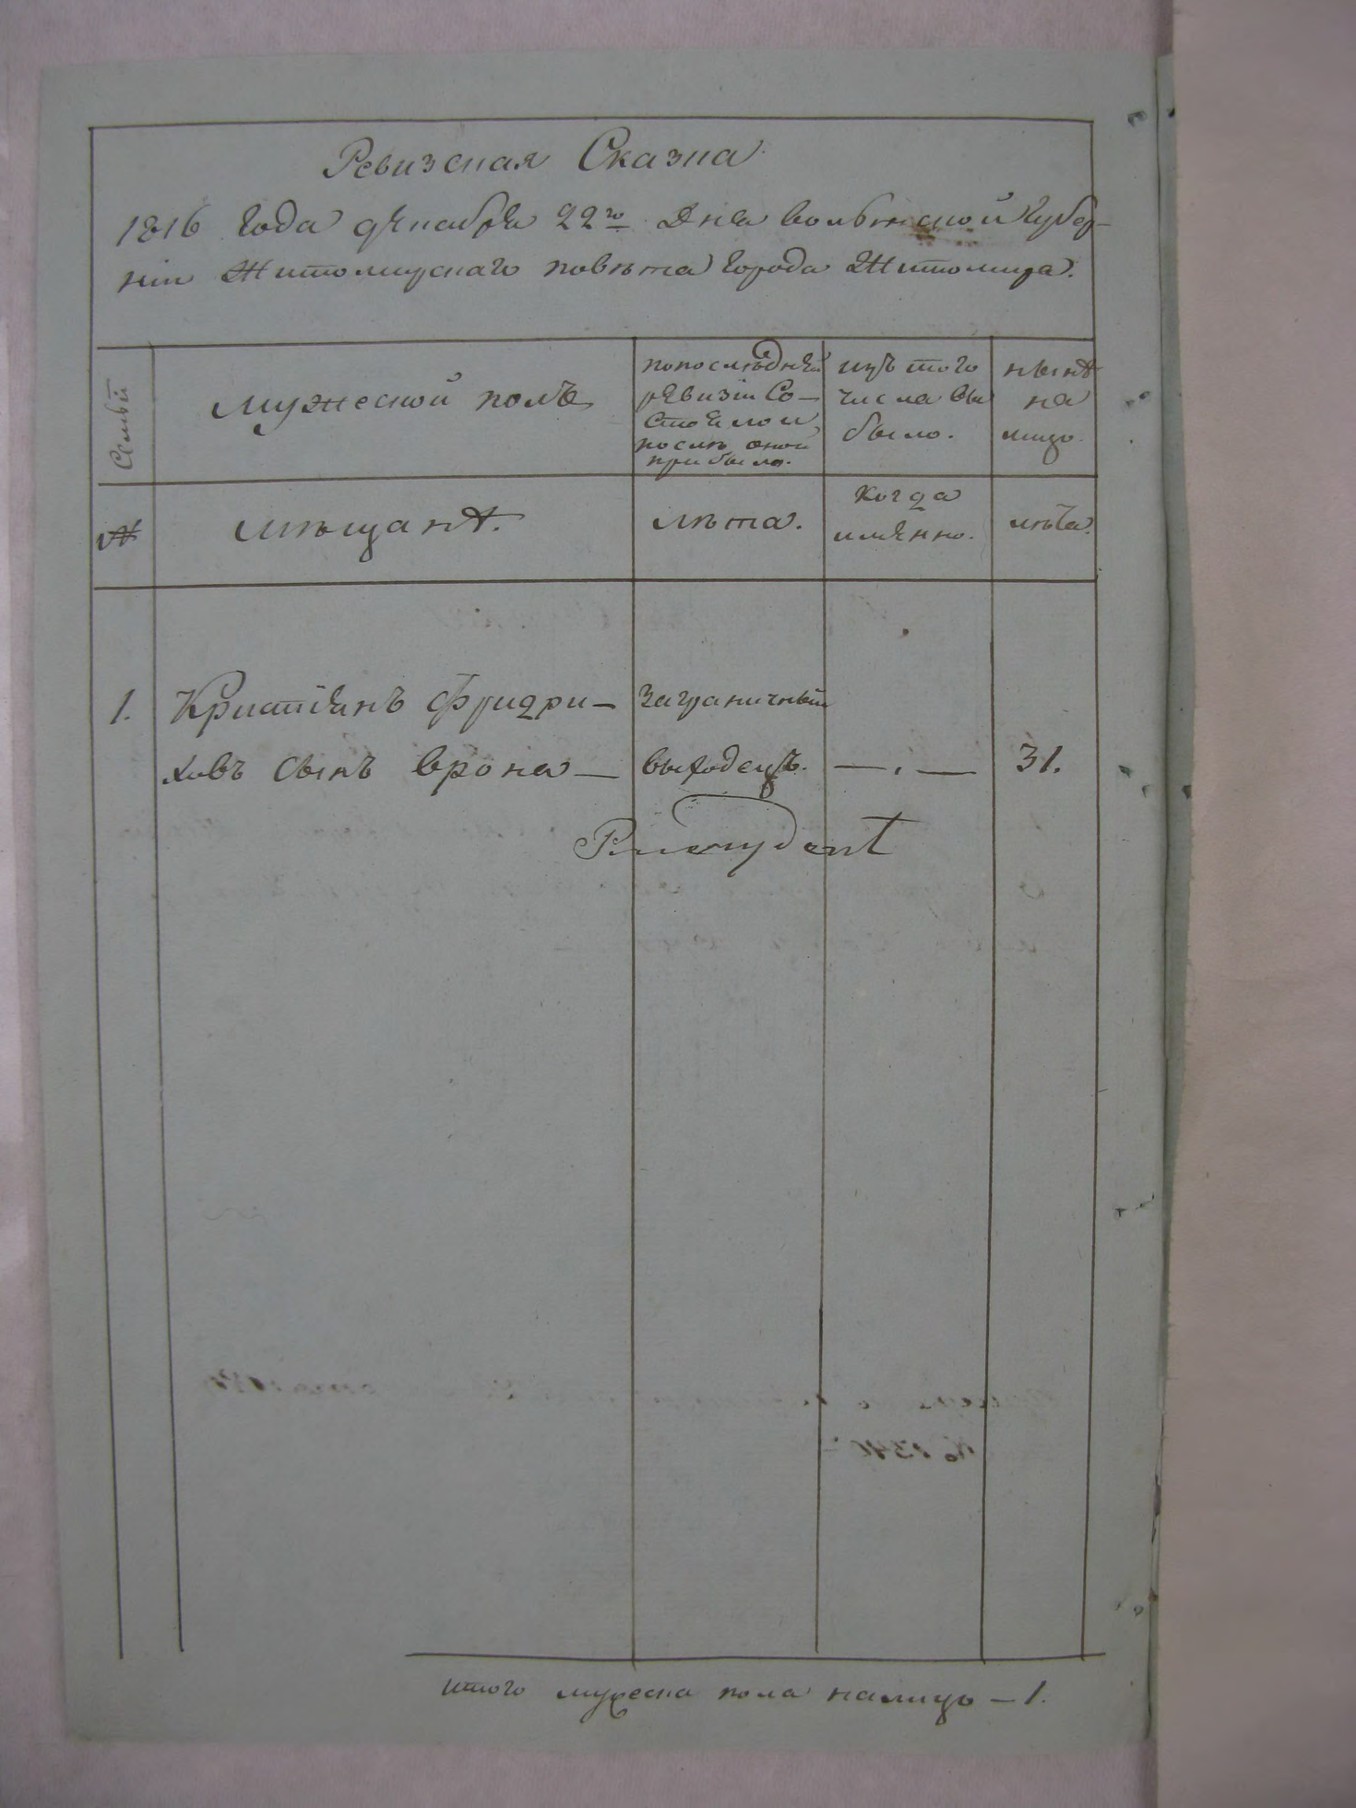 Ревизская Сказка
1816 Года декабря 22го Дня Волынской Губер-
нiи Житомирскаго повѣта Города Житомира.
Семьи
мужеской полъ
по последней
ревизiи Со-
стояло и
послѣ оной
прибыло.
изъ того
числа вы
было.
нынѣ
на
лицо
№
мѣщанѣ.
лѣта.
когда
имянно.
лѣта.
1.
Криштiянъ Фридри-
ховъ сынъ Врона —
заграничный
выходецъ.
— . —
31.
Prezydent
итого мужеска пола налицо — 1.